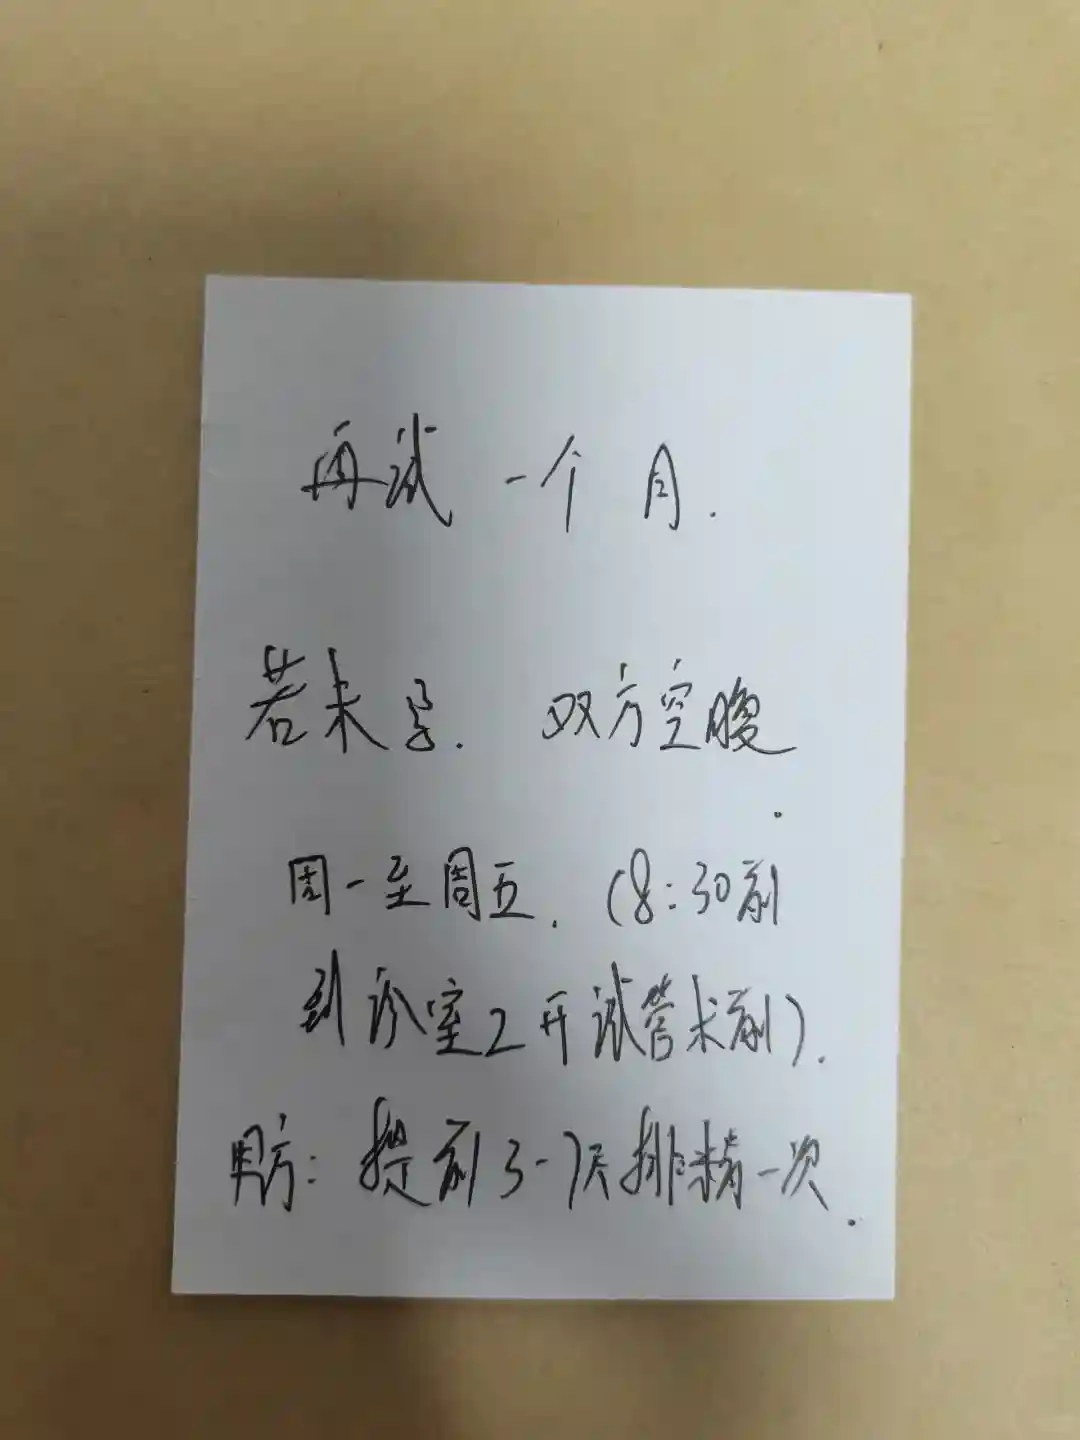 再试一个月.
若未孕. 双方空腹.
周一至周五. (8:30前
到诊室2开试管术前).
男方: 提前3-7天排精一次.